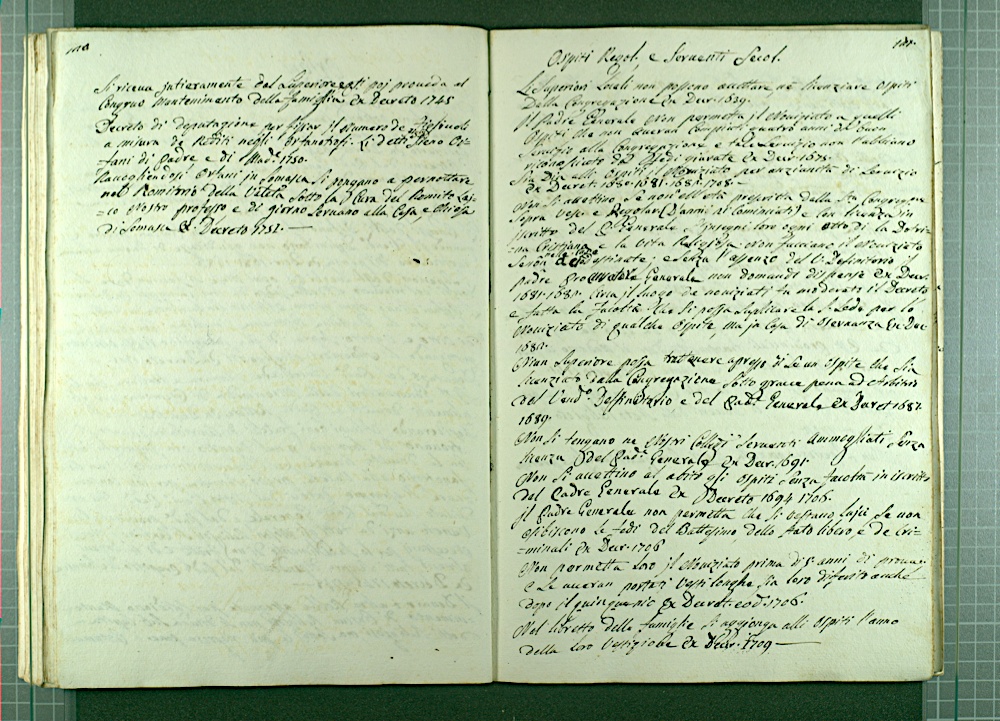 Si riceva intieramente dal Superiore e poi proveda al
Congruo Mantenimento della famiglia Ex Decreto 1745
Decreto di deputazione per fissar il numero de
a misura de Redditi negli Orfanotrofi. Li detti sieno Or-
fani di Padre e di Madre 1750.
Raccogliendosi Orfani in Somasca si pongano a pernottare
nel Romitorio della Valletta sotto la Cura del Romito Lai-
co Nostro professo e di giorno servano alla Casa e Chiesa
di Somasca Ex Decreto 1751.
Ospiti Regol. e Serventi Secol.
Li Superiori Locali non possono accettare ne licenziare Ospiti
Della Congregazione Ex Decr. 1639.
Il Padre Generale Non permetta il Noviziato a quelli
Ospiti che non averan compiuti quattro anni di buon
servizio alla Congregazione e tale servizio non l'abbiano
giustificato da fedi giurate Ex Decr. 1675.
Sia Dia alli Ospiti il Noviziato per anzianità di servizio
Ex Decret. 1680. 1681. 1685. 1708.
Non si accettino se non all'età prescritta dalla Sta Congregne
sopra Vesc. e Regolari e con licenza in
iscritto del P. Generale. S'insegni loro ogni anno la Dotri-
na Cristiana e la Vita Religiosa Non facciano il Noviziato
se non destinate; e senza l'assenzo del V. Definitorio il
padre Procuratore Generale non domandi dispense Ex Decr.
1681. 1682. Circa il luogo de noviziati fu moderato il Decreto
e fatta la facoltà che si possa suplicare la S. Sede per lo
Noviziato di qualche Ospite, ma in Casa di Osservanza Ex Dec.
1682.
Niun Superiore possa rattenere apresso di se un Ospite che sia
licenziato dalla Congregazione sotto grave pena ad Arbitrio
del Vend.o Deffinitorio e del Pad. Generale Ex Decret 1687.
1689.
Non si tengano ne Nostri Collegi Serventi Ammogliati senza
licenza del Pad. Generale Ex Decr. 1691.
Non si accettino al abito gli Ospiti senza facoltà in iscritto
del Padre Generale Ex Decreto 1694 1706.
Il Padre Generale non permetta che si vestano laici se non
esibiscono le fedi del Battesimo dello stato libero, e de Cri-
minali Ex Decr. 1706
Non permetta loro il Noviziato prima di 5. anni di prova
e se averan portati Vesti longhe sia loro diferito anche
dopo il quinquenio Ex Decret. eod. 1706.
Nel libretto delle famiglie si aggionga alli Ospiti l'anno
della loro Vestizione Ex Decr. 1709